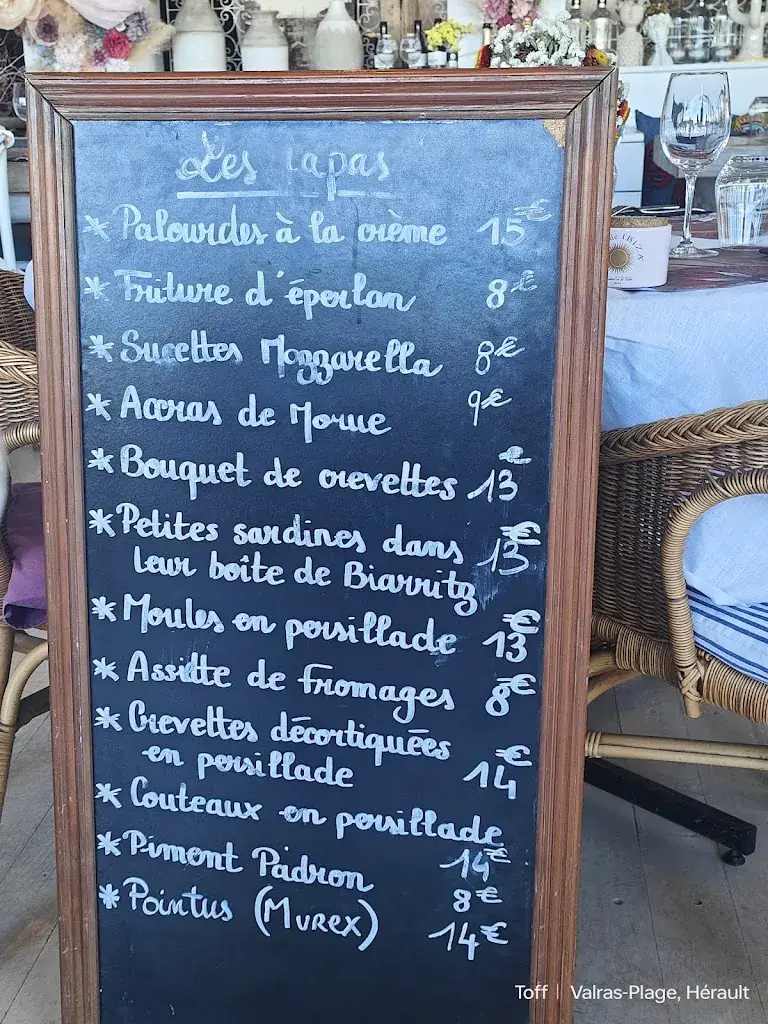 Les Tapas
* Palourdes à la crème 15€
* Friture d'éperlan 8€
* Sucettes Mozzarella 8€
* Accras de Morue 9€
* Bouquet de crevettes 13€
* Petites sardines dans 13€
leur boîte de Biarritz
* Moules en persillade 13€
* Assiette de fromages 8€
* Crevettes décortiquées
en persillade 14€
* Couteaux en persillade
14€
* Piment Padron 8€
* Pointus (Murex) 14€
IBIZA
Toff | Valras-Plage, Hérault